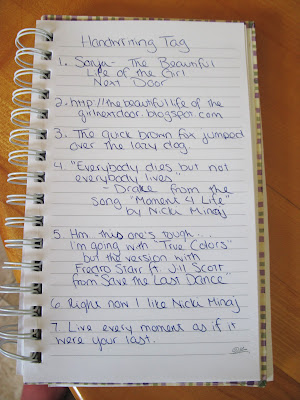 Handwriting Tag
1. Sonya - The Beautiful
Life of the Girl
Next Door
2. http://thebeautifullifeofthe
girlnextdoor.blogspot.com
3. The quick brown fox jumped
over the lazy dog.
4. "Everybody dies but not
everybody lives"
- Drake from the
song "Moment 4 Life"
by Nicki Minaj
5. Hm this one's tough...
I'm going with "True Colors"
but the version with
Fredro Starr ft. Jill Scott
from "Save the Last Dance"
6. Right now I like Nicki Minaj
7. Live every moment as if it
were your last.